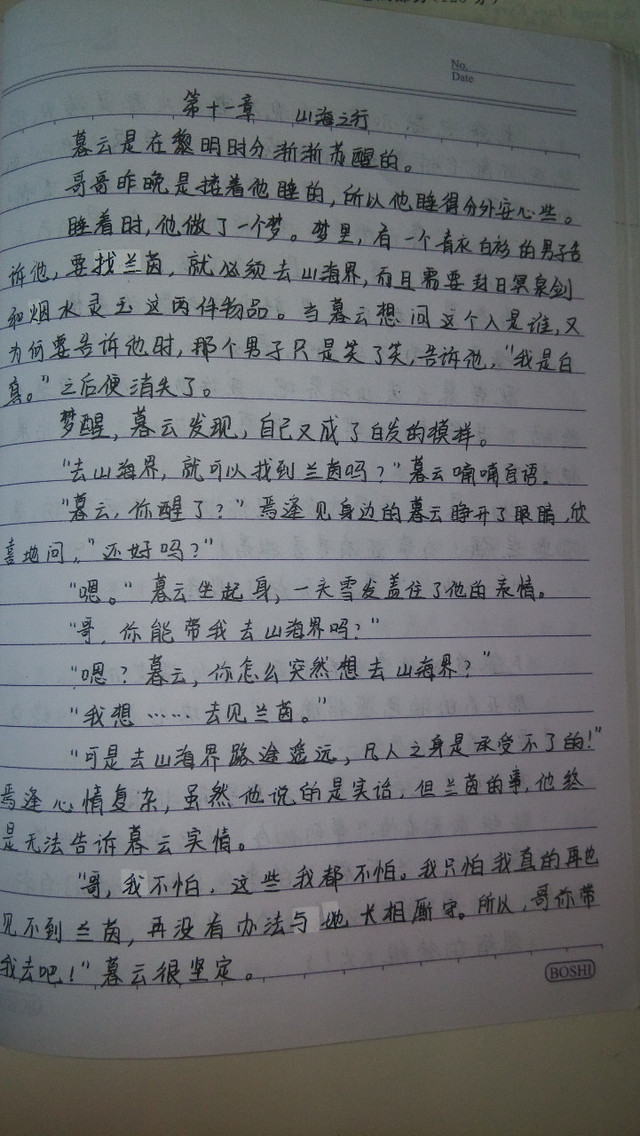 No.
Date
第十一章 山海之行
暮云是在黎明时分渐渐苏醒的。
哥哥昨晚是搂着他睡的，所以他睡得分外安心些。
睡着时，他做了一个梦。梦里，有一个青衣白衫的男子告
诉他，要找兰茵，就必须去山海界，而且需要封日冥泉剑
和烟水灵玉这两件物品。当暮云想问这个人是谁，又
为何要告诉他时，那个男子只是笑了笑，告诉他，“我是白
。”之后便消失了。
梦醒，暮云发现，自己又成了白发的模样。
“去山海界，就可以找到兰茵吗？”暮云喃喃自语。
“暮云，你醒了？”焉逢见身边的暮云睁开了眼睛，欣
喜地问，“还好吗？”
“嗯。”暮云坐起身，一头雪发盖住了他的表情。
“哥，你能带我去山海界吗？”
“嗯？暮云，你怎么突然想去山海界？”
“我想……去见兰茵。”
“可是去山海界路途遥远，凡人之身是承受不了的！”
焉逢心情复杂，虽然他说的是实话，但兰茵的事，他终
是无法告诉暮云实情。
“哥，我不怕，这些我都不怕。我只怕我真的再也
见不到兰茵，再没有办法与她长相厮守。所以，哥你带
我去吧！”暮云很坚定。
BOSHI